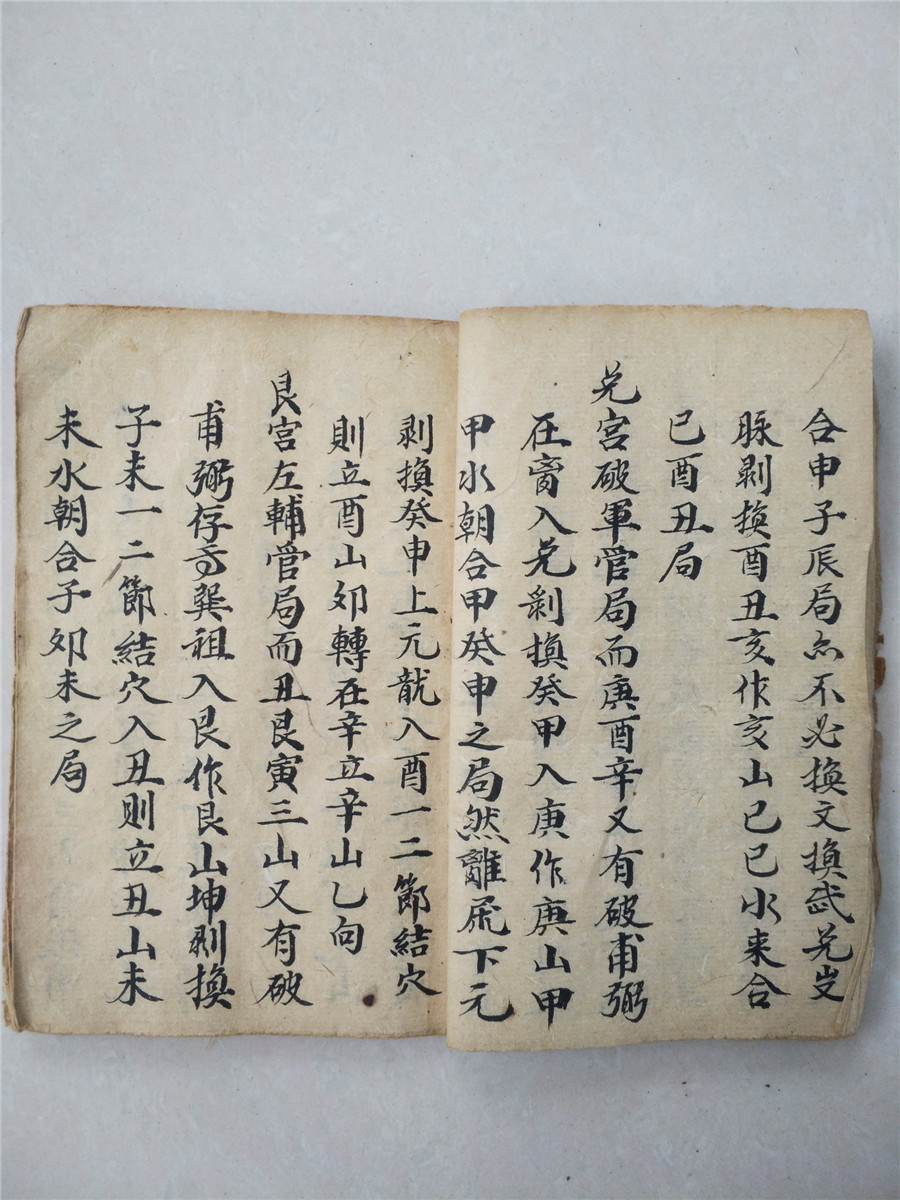 合申子辰局亦不必換文換武兑㞢
脉剥換酉丑亥作亥山巳巳水来合
巳酉丑局
兑宮破軍管局而庚酉辛又有破甫弼
在𤲞入兑剝換癸甲入庚作庚山甲
甲水朝合甲癸申之局然離屈下元
剥換癸申上元龍入酉一二節結穴
則立酉山夘轉在辛立辛山乙向
艮宮左輔管局而丑艮寅三山又有破
甫弼存焉巽祖入艮作艮山坤剥換
子未一二節結穴入丑則立丑山未
未水朝合子夘未之局